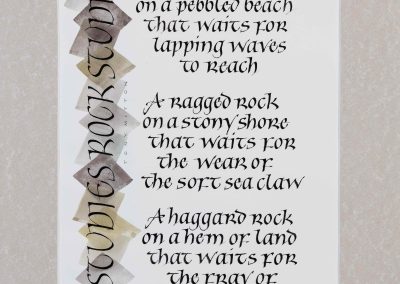 on a pebbled beach
that waits for
lapping waves
to reach
A ragged rock
on a stony shore
that waits for
the wear of
the soft sea claw
A haggard rock
on a hem of land
that waits for
the fray of
STUDIES ROCK STUDI